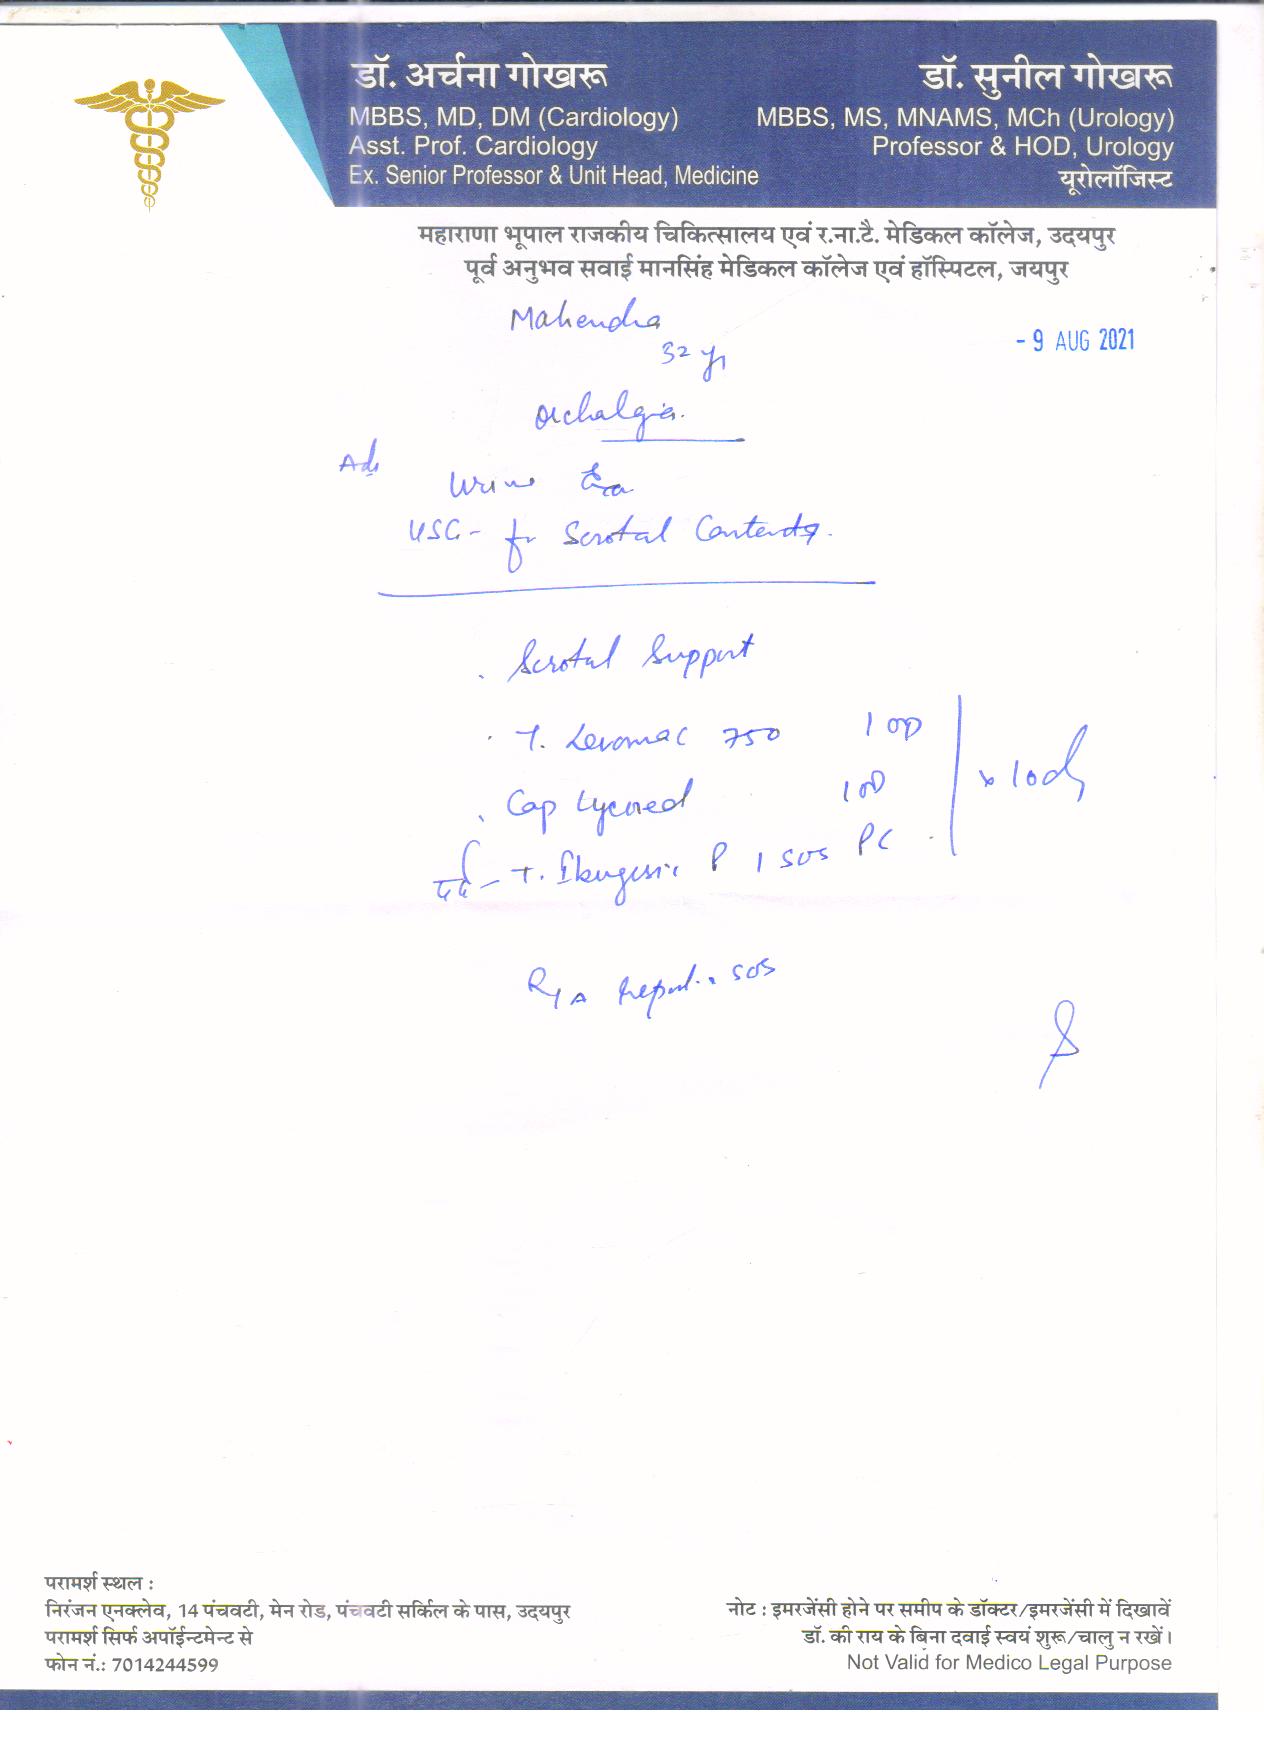 डॉ. अर्चना गोखरू
MBBS, MD, DM (Cardiology)
Asst. Prof. Cardiology
Ex. Senior Professor & Unit Head, Medicine
डॉ. सुनील गोखरू
MBBS, MS, MNAMS, MCh (Urology)
Professor & HOD, Urology
यूरोलॉजिस्ट
महाराणा भूपाल राजकीय चिकित्सालय एवं र.ना.टै. मेडिकल कॉलेज, उदयपुर
पूर्व अनुभव सवाई मानसिंह मेडिकल कॉलेज एवं हॉस्पिटल, जयपुर
Mahendra
- 9 AUG 2021
32 yr
Orchalgia.
Adv
Urine
USG - for Scrotal Contents.
. Scrotal Support
. T. Levomac 750 1 OD
x 10d
. Cap Lycored 1 OD
दर्द - T. Ibugesic P 1 SOS PC
R/A report. SOS
परामर्श स्थल :
निरंजन एनक्लेव, 14 पंचवटी, मेन रोड, पंचवटी सर्किल के पास, उदयपुर
परामर्श सिर्फ अपॉईन्टमेन्ट से
फोन नं.: 7014244599
नोट : इमरजेंसी होने पर समीप के डॉक्टर/इमरजेंसी में दिखावें
डॉ. की राय के बिना दवाई स्वयं शुरू/चालु न रखें।
Not Valid for Medico Legal Purpose